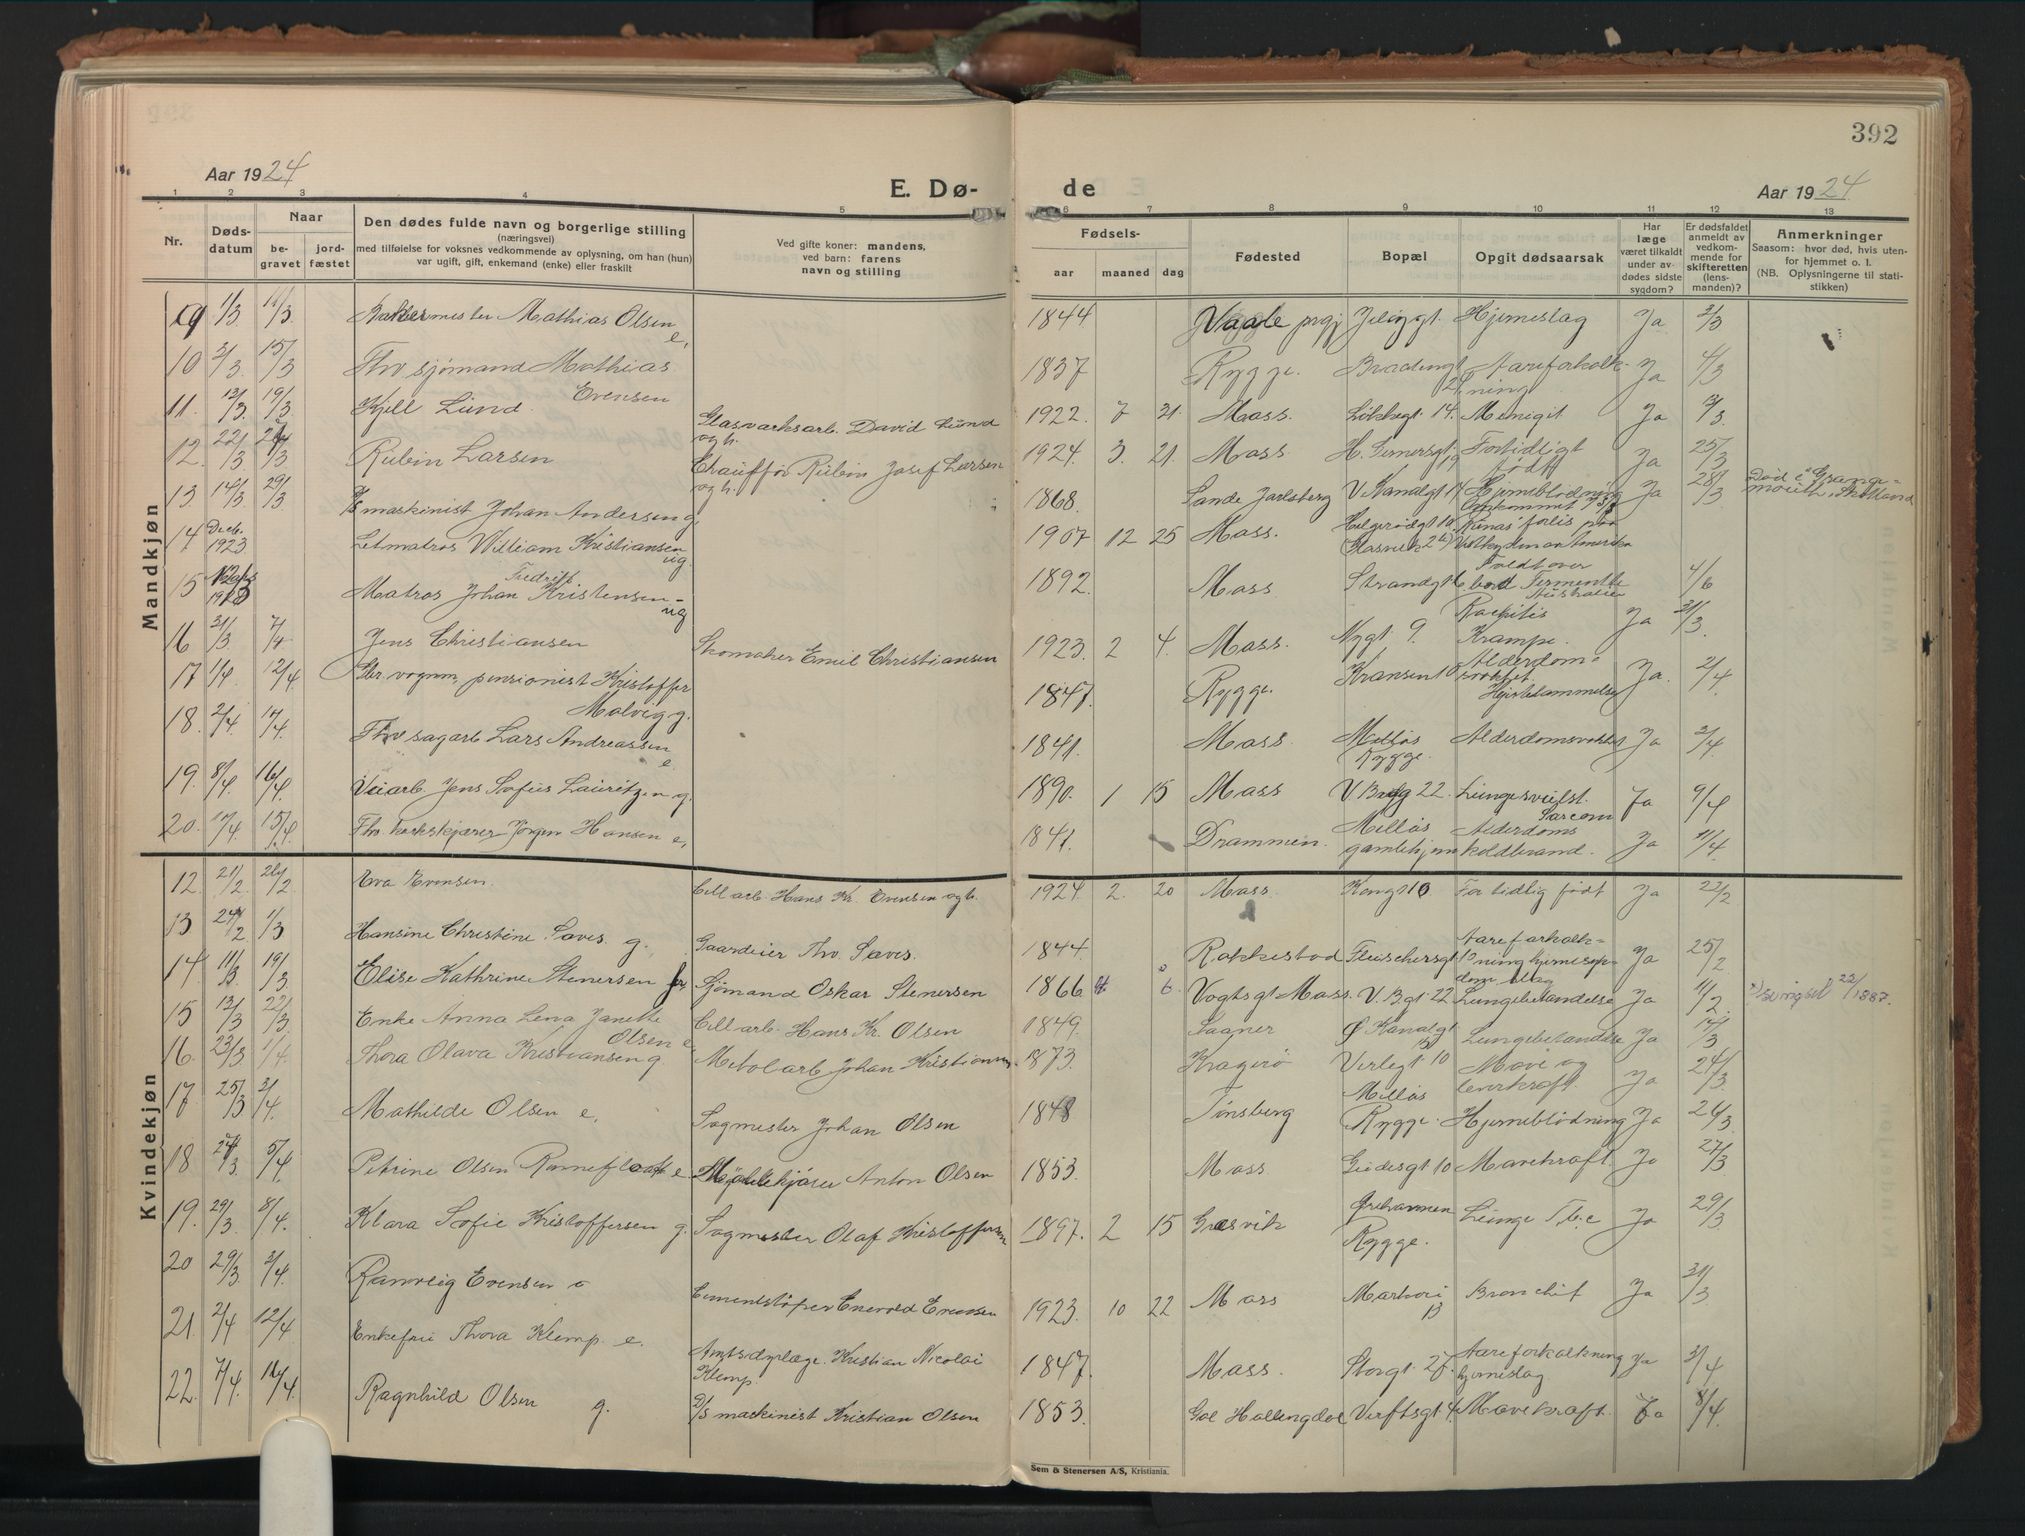 392
Aar 1924
E. Dø-
de
Aar 1924
1 2 3 4 5 6 7 8 9 10 11 12 13
Nr.
Døds-
datum
Naar
be-
gravet
jord-
fæstet
Den dødes fulde navn og borgerlige stilling
(næringsvei)
med tilføielse for voksnes vedkommende av oplysning, om han (hun)
var ugift, gift, enkemand (enke) eller fraskilt
Ved gifte koner: mandens,
ved barn: farens
navn og stilling
Fødsels-
aar
maaned
dag
Fødested
Bopæl
Opgit dødsaarsak
Har
læge
været tilkaldt
under av-
dødes sidste
sygdom?
Er dødsfaldet
anmeldt av
vedkom-
mende for
skifteretten
(lens-
manden)?
Anmerkninger
Saasom: hvor død, hvis uten-
for hjemmet o. l.
(NB. Oplysningerne til stati-
stikken)
Mandkjøn
9 1/3 11/3 Bakermester Mathias Olsen e, 1844 Vaale prgj Jeløgt. Hjerneslag Ja 3/3
10 2/3 15/3 Fhv sjømand Mathias Evensen 1837 Rygge. Aareforkalk-ning Ja 4/3
11. 12/3 19/3 Kjell Lund. Glasverksarb. David Lund ogh. 1922 7 21. Mass. Løkkegt. 14. Menigit Ja
12. 22/3 Rubin Larsen Chauffør Rubin Josef Larsen ogh. 1924. 3. 21. Mass. Fortidligt født Ja 25/3
13 14/3 29/3 D/s maskinist Johan Andersen g. 1868. Sande Jarlsberg V. Kanalgt 14 Hjerneblødning Ja 28/3 Død i Grange-mouth, Skotland
14 Decb. 1923 Letmatros William Kristiansen ug. 1907 12 25 Mass. Omkommet forlis paa
15 Matros Johan Fredrik Kristensen - ug 1892. Mass Strandgt Faldt over bord Australien 4/6
16 31/3 7/4 Jens Christiansen Skomaker Emil Christiansen 1923. 2 4. Mass. Nygt 9. Rachitis Krampe. Ja 31/3
17 1/4 12/4 pensionist Kristoffer Malvig g. 1847. Rygge. Kransen 10 Alderdom- Ja. 2/4
18. 2/4 Fhv sagarb Lars Andreassen e. 1841. Mass. Melløs Rygge. Ja 3/4
19. 8/4 16/4 Veiarb. Jens Sofus Lauritzen g. 1890. 1 15 Mass 22. Lungesvulst. Sarcom Ja 9/4
20. 15/4 Fhv. korkskjærer Jørgen Hansen e, 1841. Drammen. Melløs gamlehjem Alderdoms koldbrand. Ja 11/4
Kvindekjøn
12. 21/2 26/2 Eva Evensen. Cell arb. Hans Kr. Evensen ogh. 1924 2. 20 Mass. Kongt 10 For tidlig født Ja 22/2
13 1/3 Hansine Christine Saves. g. Gaardeier Thv. Saves. 1844. Rakkestad Fleischersgt Aareforkalk-ning Ja 25/2
14. 11/3 19/3 Elise Kathrine Stenersen Sjømand Oskar Stenersen 1866 6. Vogtsgt Mass. V. Bgt 22 Lungebetændelse Ja 22/1887.
15 13/3 22/3 Enke Anna Lena Janette Olsen e Cell arb. Hans Kr. Olsen 1849. Saaner Ø Kanalgt 13 Lungebetændelse Ja 14/3
16. 23/3 1/4. Thora Olava Kristiansen g. Metal arb Johan Kristiansen 1873. Kragerø Verlegt. 10 Mave og leverkræft. Ja 24/3
17. 25/3 3/4 Mathilde Olsen e, Sagmester Johan Olsen 1848 Tønsberg Melløs Rygge. Hjerneblødning Ja 26/3
18 5/4 Petrine Olsen Rønnefloat e Anton Olsen 1853. Mass. Gudesgt 10 Mavekræft. Ja 27/3
19. 29/3 8/4. Klara Sofie Kristoffersen g. Sagmester Olaf Kristoffersen 1897. 2 15 Græsvik Ørehavnen Rygge. Lunge Tbc Ja 29/3
20 29/3 3/4. Ranveig Evensen Cementstøper Enevold Evensen 1923. 10 22 Mass Bronchit Ja 31/3
21. 2/4 12/4 Enkefru Thora Klemp. e. Kristian Nicolai Klemp. 1847. Mass. Storgt. 27. Aareforkalkning hjerneslag Ja 3/4
22. 7/4 Ragnhild Olsen g. D/s maskinist Kristian Olsen 1853. Gol Hallingdal Verftsgt 4. Mavekræft. Ja 8/4
Sem & Stenersen A/S, Kristiania.